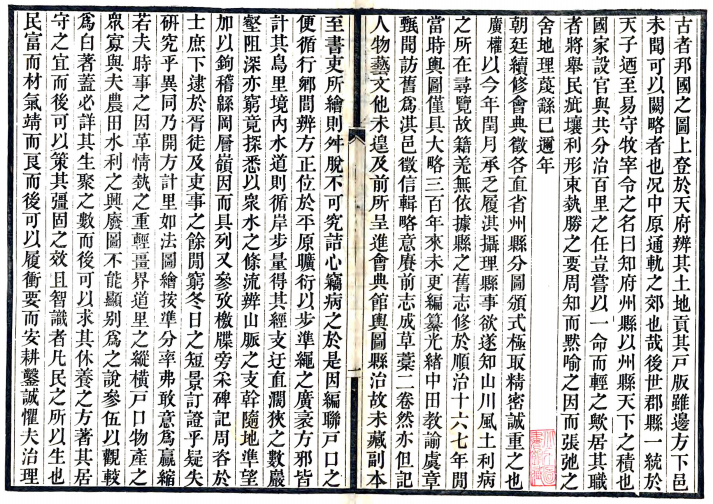 古者邦國之圖上登於天府辨其土地貢其戸版雖邊方下邑
未聞可以闕略者也况中原通軌之郊也哉後世郡縣一統於
天子迺至易守牧宰令之名曰知府州縣以州縣天下之積也
國家設官與共分治百里之任豈嘗以一命而輕之歟居其職
者將舉民疵壤利形束埶勝之要周知而黙喻之因而張弛之
舍地理蔑繇已邇年
朝廷續修會典徵各直省州縣分圖頒式極取精密誠重之也
廣權以今年閏月承乏履淇攝理縣事欲遂知山川風土利病
之所在尋覽故籍羌無依據縣之舊志修於順治十六七年閒
當時輿圖僅具大略三百年來未更編纂光緒中田教諭虞章
甄聞訪舊為淇邑徵信輯略意賡前志成草藁二卷然亦但記
人物藝文他未遑及前所呈進會典館輿圖縣治故未藏副本
至書吏所繪則舛脫不可究詰心竊病之於是因編聯戸口之
便循行鄉閭辨方正位於平原曠衍以步準繩之廣豪方邪皆
計其鳥里境內水道則循岸步量得其經支迂直濶狹之數巖
壑阻深亦窮竟探悉以衆水之條流辨山脈之支幹隨地準望
加以鉤稽縣岡層嶺因而具列又參攷檄牒旁宷碑記周咨於
士庶下逮於胥徒及吏事之餘閒窮冬日之短景訂證乎疑失
研究乎異同乃開方計里如法圖繪按準分率弗敢意爲贏縮
若夫時事之因革情埶之重輕畺界道里之縱橫戸口物產之
衆寡與夫農田水利之興廢圖不能顯别爲之說參伍以觀較
爲白著蓋必詳其生聚之數而後可以求其休養之方著其居
守之宜而後可以策其彊固之效且智識者凡民之所以生也
民富而材氣靖而良而後可以履衝要而安耕鑿誠懼夫治理